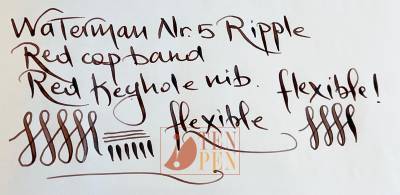 Waterman Nr. 5 Ripple
Red cap band
Red Keyhole nib.
flexible!
flexible
TEN
PEN